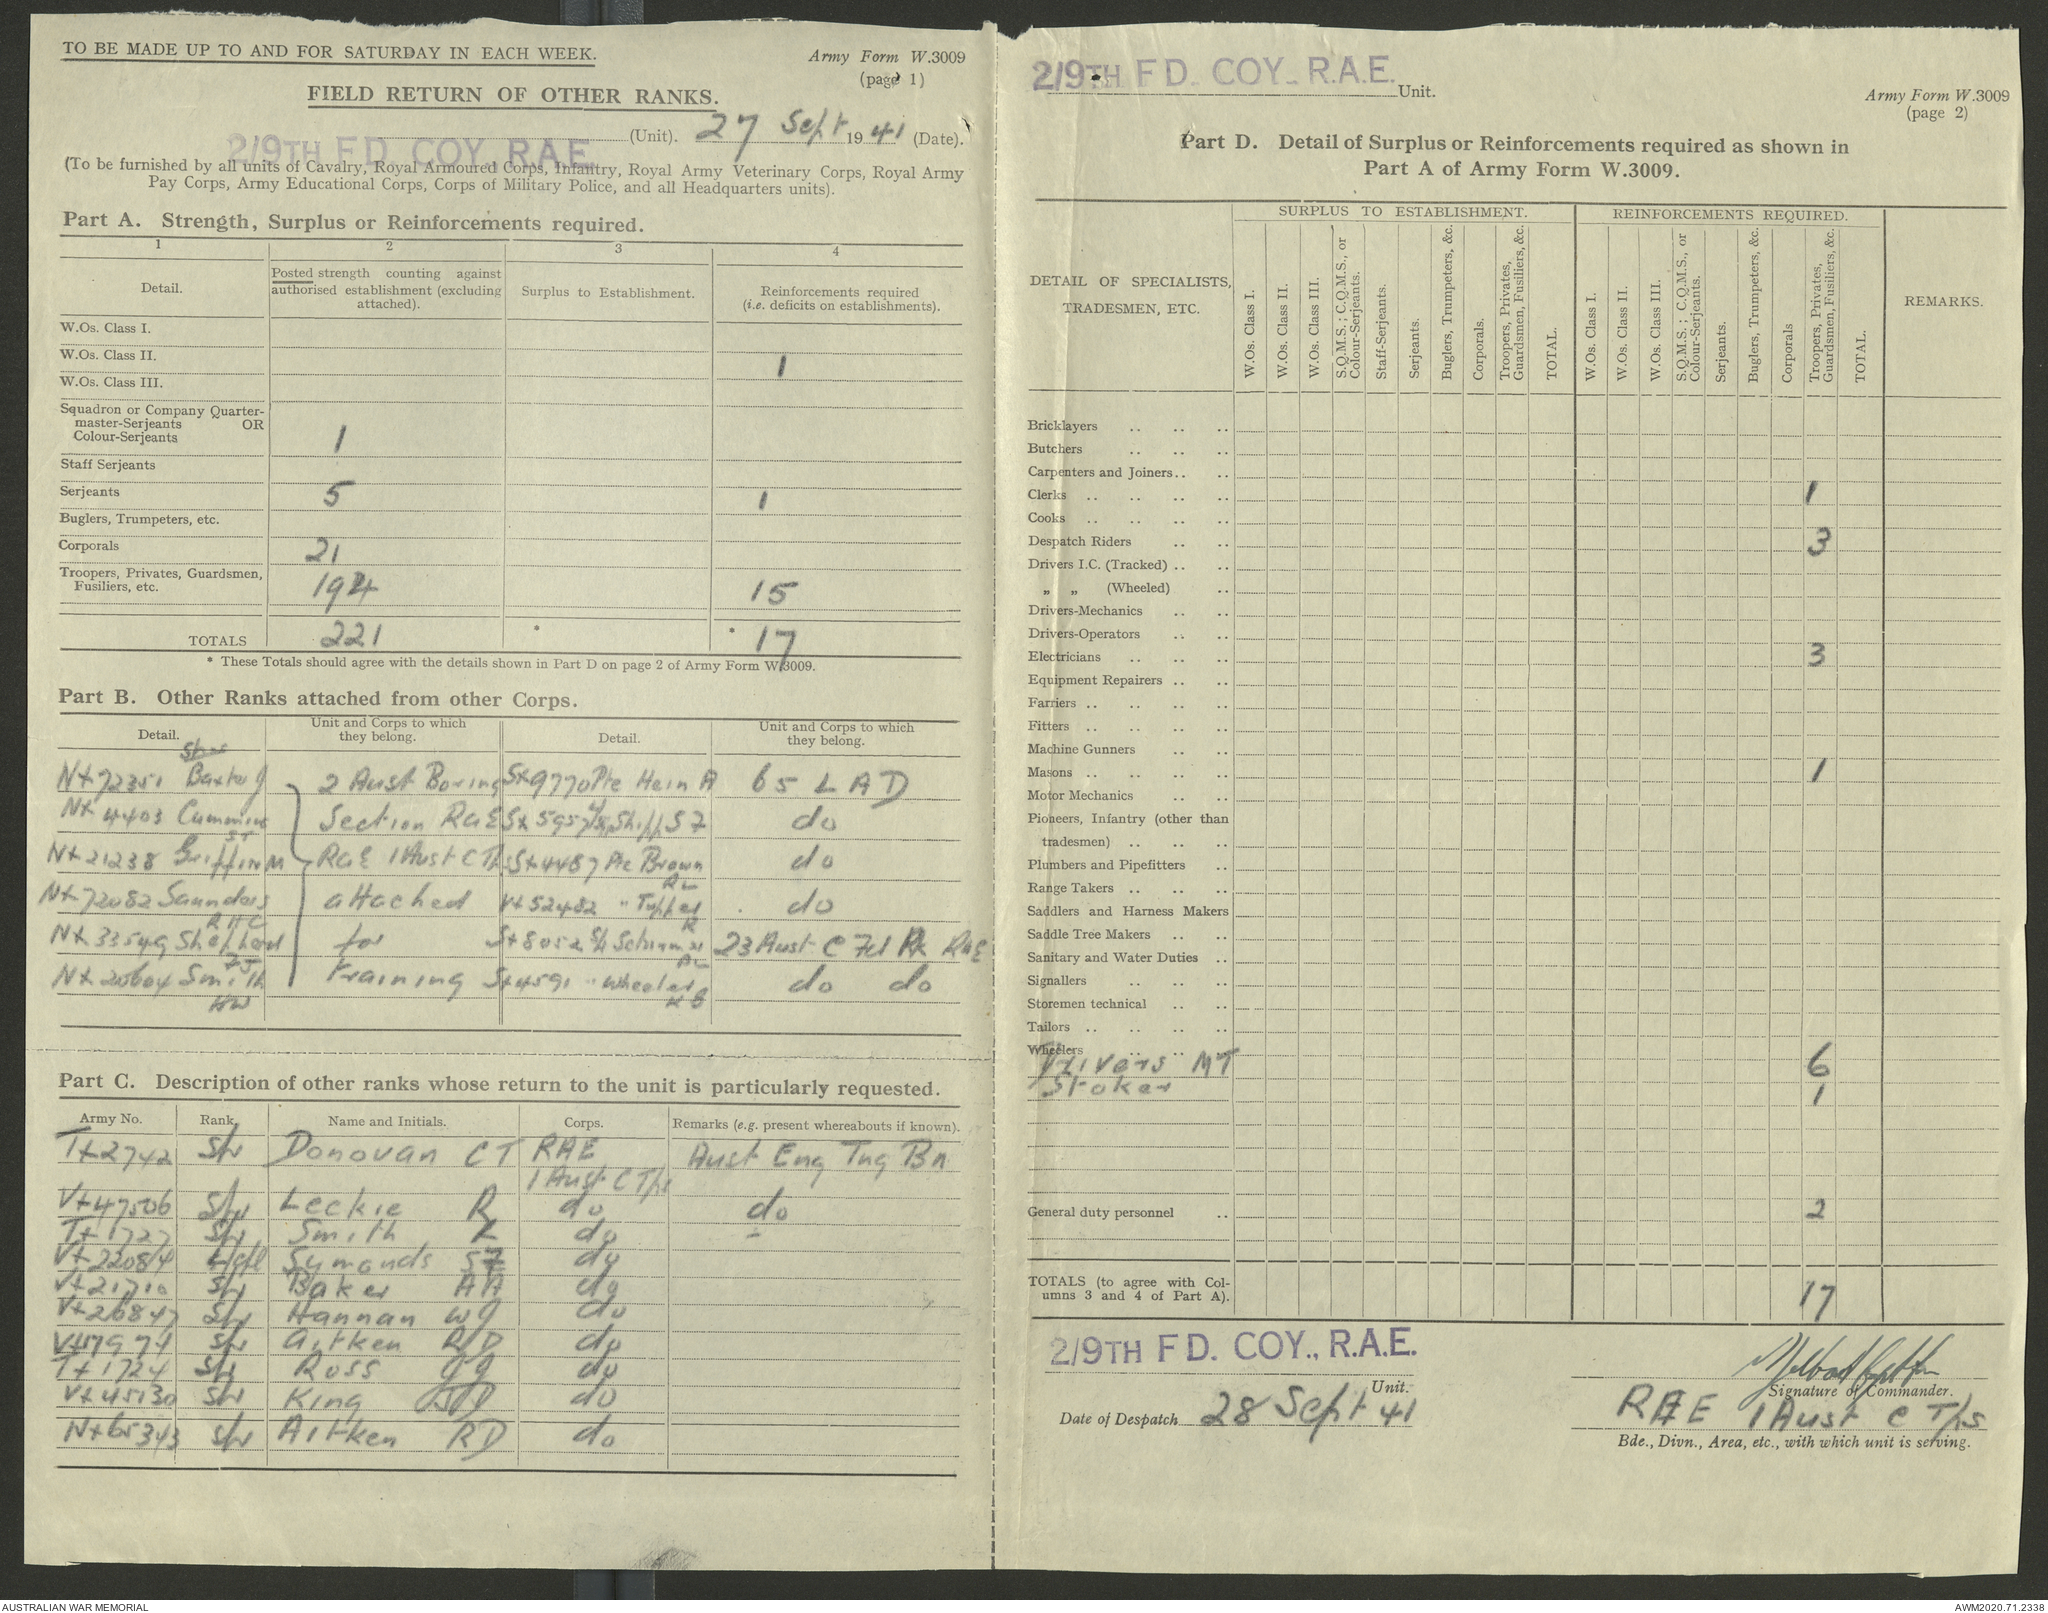 TO BE MADE UP TO AND FOR SATURDAY IN EACH WEEK.
Army Form W.3009
(page 1)
FIELD RETURN OF OTHER RANKS.
2/9TH FD. COY. R.A.E. (Unit). 27 Sept 1941 (Date).
(To be furnished by all units of Cavalry, Royal Armoured Corps, Infantry, Royal Army Veterinary Corps, Royal Army
Pay Corps, Army Educational Corps, Corps of Military Police, and all Headquarters units).
Part A. Strength, Surplus or Reinforcements required.
1 2 3 4
Detail.
Posted strength counting against
authorised establishment (excluding
attached).
Surplus to Establishment.
Reinforcements required
(i.e. deficits on establishments).
W.Os. Class I.
W.Os. Class II. 1
W.Os. Class III.
Squadron or Company Quarter-
master-Serjeants OR
Colour-Serjeants 1
Staff Serjeants
Serjeants 5 1
Buglers, Trumpeters, etc.
Corporals 21
Troopers, Privates, Guardsmen,
Fusiliers, etc. 194 15
TOTALS 221 * * 17
* These Totals should agree with the details shown in Part D on page 2 of Army Form W.3009.
Part B. Other Ranks attached from other Corps.
Detail.
Unit and Corps to which
they belong.
Detail.
Unit and Corps to which
they belong.
Spr
Nx72351 Baxter J 2 Aust Boring Sx9770 Pte Hein A 65 L A D
Nx4403 Cummins Section RAE Sx5957 Shipp S J do
ST
Nx21238 Griffin M RAE 1 Aust C Tps Sx4487 Pte Brown do
Nx72082 Saunders attached Vx52482 " Tupper do
RHC R
Nx33549 Shepherd for Sx8052 23 Aust C Fd Pk RAE
Nx20604 Smith training Sx4591 " Wheeler do do
HW KG
Part C. Description of other ranks whose return to the unit is particularly requested.
Army No. Rank. Name and Initials. Corps. Remarks (e.g. present whereabouts if known).
Tx2742 Spr Donovan CT RAE Aust Eng Tng Bn
1 Aust C Tps
Vx47506 Spr Leckie R do do
Tx1727 Spr Smith L do
Vx22084 L/Cpl Symonds do
Vx21710 Spr Baker A A do
Vx26847 Spr Hannan W J do
Spr Aitken R D do
Tx1724 Spr Ross J J do
Vx45130 Spr King do
Nx65343 Spr Aitken RD do
2/9TH FD. COY. R.A.E. Unit.
Army Form W.3009
(page 2)
Part D. Detail of Surplus or Reinforcements required as shown in
Part A of Army Form W.3009.
DETAIL OF SPECIALISTS,
TRADESMEN, ETC.
SURPLUS TO ESTABLISHMENT.
W.Os. Class I.
W.Os. Class II.
W.Os. Class III.
S.Q.M.S.; C.Q.M.S., or
Colour-Serjeants.
Staff-Serjeants.
Serjeants.
Buglers, Trumpeters, &c.
Corporals.
Troopers, Privates,
Guardsmen, Fusiliers, &c.
TOTAL.
REINFORCEMENTS REQUIRED.
W.Os. Class I.
W.Os. Class II.
W.Os. Class III.
S.Q.M.S.; C.Q.M.S., or
Colour-Serjeants.
Serjeants.
Buglers, Trumpeters, &c.
Corporals
Troopers, Privates,
Guardsmen, Fusiliers, &c.
TOTAL.
REMARKS.
Bricklayers .. .. ..
Butchers .. .. ..
Carpenters and Joiners .. ..
Clerks .. .. .. .. 1
Cooks .. .. .. ..
Despatch Riders .. .. 3
Drivers I.C. (Tracked) .. ..
„ „ (Wheeled) ..
Drivers-Mechanics .. ..
Drivers-Operators .. ..
Electricians .. .. .. 3
Equipment Repairers .. ..
Farriers .. .. .. ..
Fitters .. .. .. ..
Machine Gunners .. ..
Masons .. .. .. .. 1
Motor Mechanics .. ..
Pioneers, Infantry (other than
tradesmen) .. .. ..
Plumbers and Pipefitters ..
Range Takers .. .. ..
Saddlers and Harness Makers
Saddle Tree Makers .. ..
Sanitary and Water Duties ..
Signallers .. .. ..
Storemen technical .. ..
Tailors .. .. .. ..
Wheelers .. .. ..
Drivers MT 6
Stoker 1
General duty personnel .. 2
TOTALS (to agree with Col-
umns 3 and 4 of Part A). 17
2/9TH FD. COY., R.A.E.
Unit.
Signature of Commander.
Date of Despatch 28 Sept 41
RAE 1 Aust C Tps
Bde., Divn., Area, etc., with which unit is serving.
AUSTRALIAN WAR MEMORIAL
AWM2020.71.2338